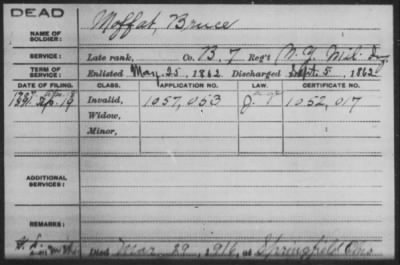 DEAD
NAME OF SOLDIER: Moffat, Bruce
SERVICE: Late rank, Co. B. 7 Reg't N.Y. Mil. Inf
TERM OF SERVICE: Enlisted May 25, 1862 Discharged Sept. 5, 1862
DATE OF FILING. CLASS. APPLICATION NO. LAW. CERTIFICATE NO.
1891 Invalid, 1057,053 1052,017
Widow,
Minor,
ADDITIONAL SERVICES:
REMARKS:
Died Mar. 29, 1916, at Springfield